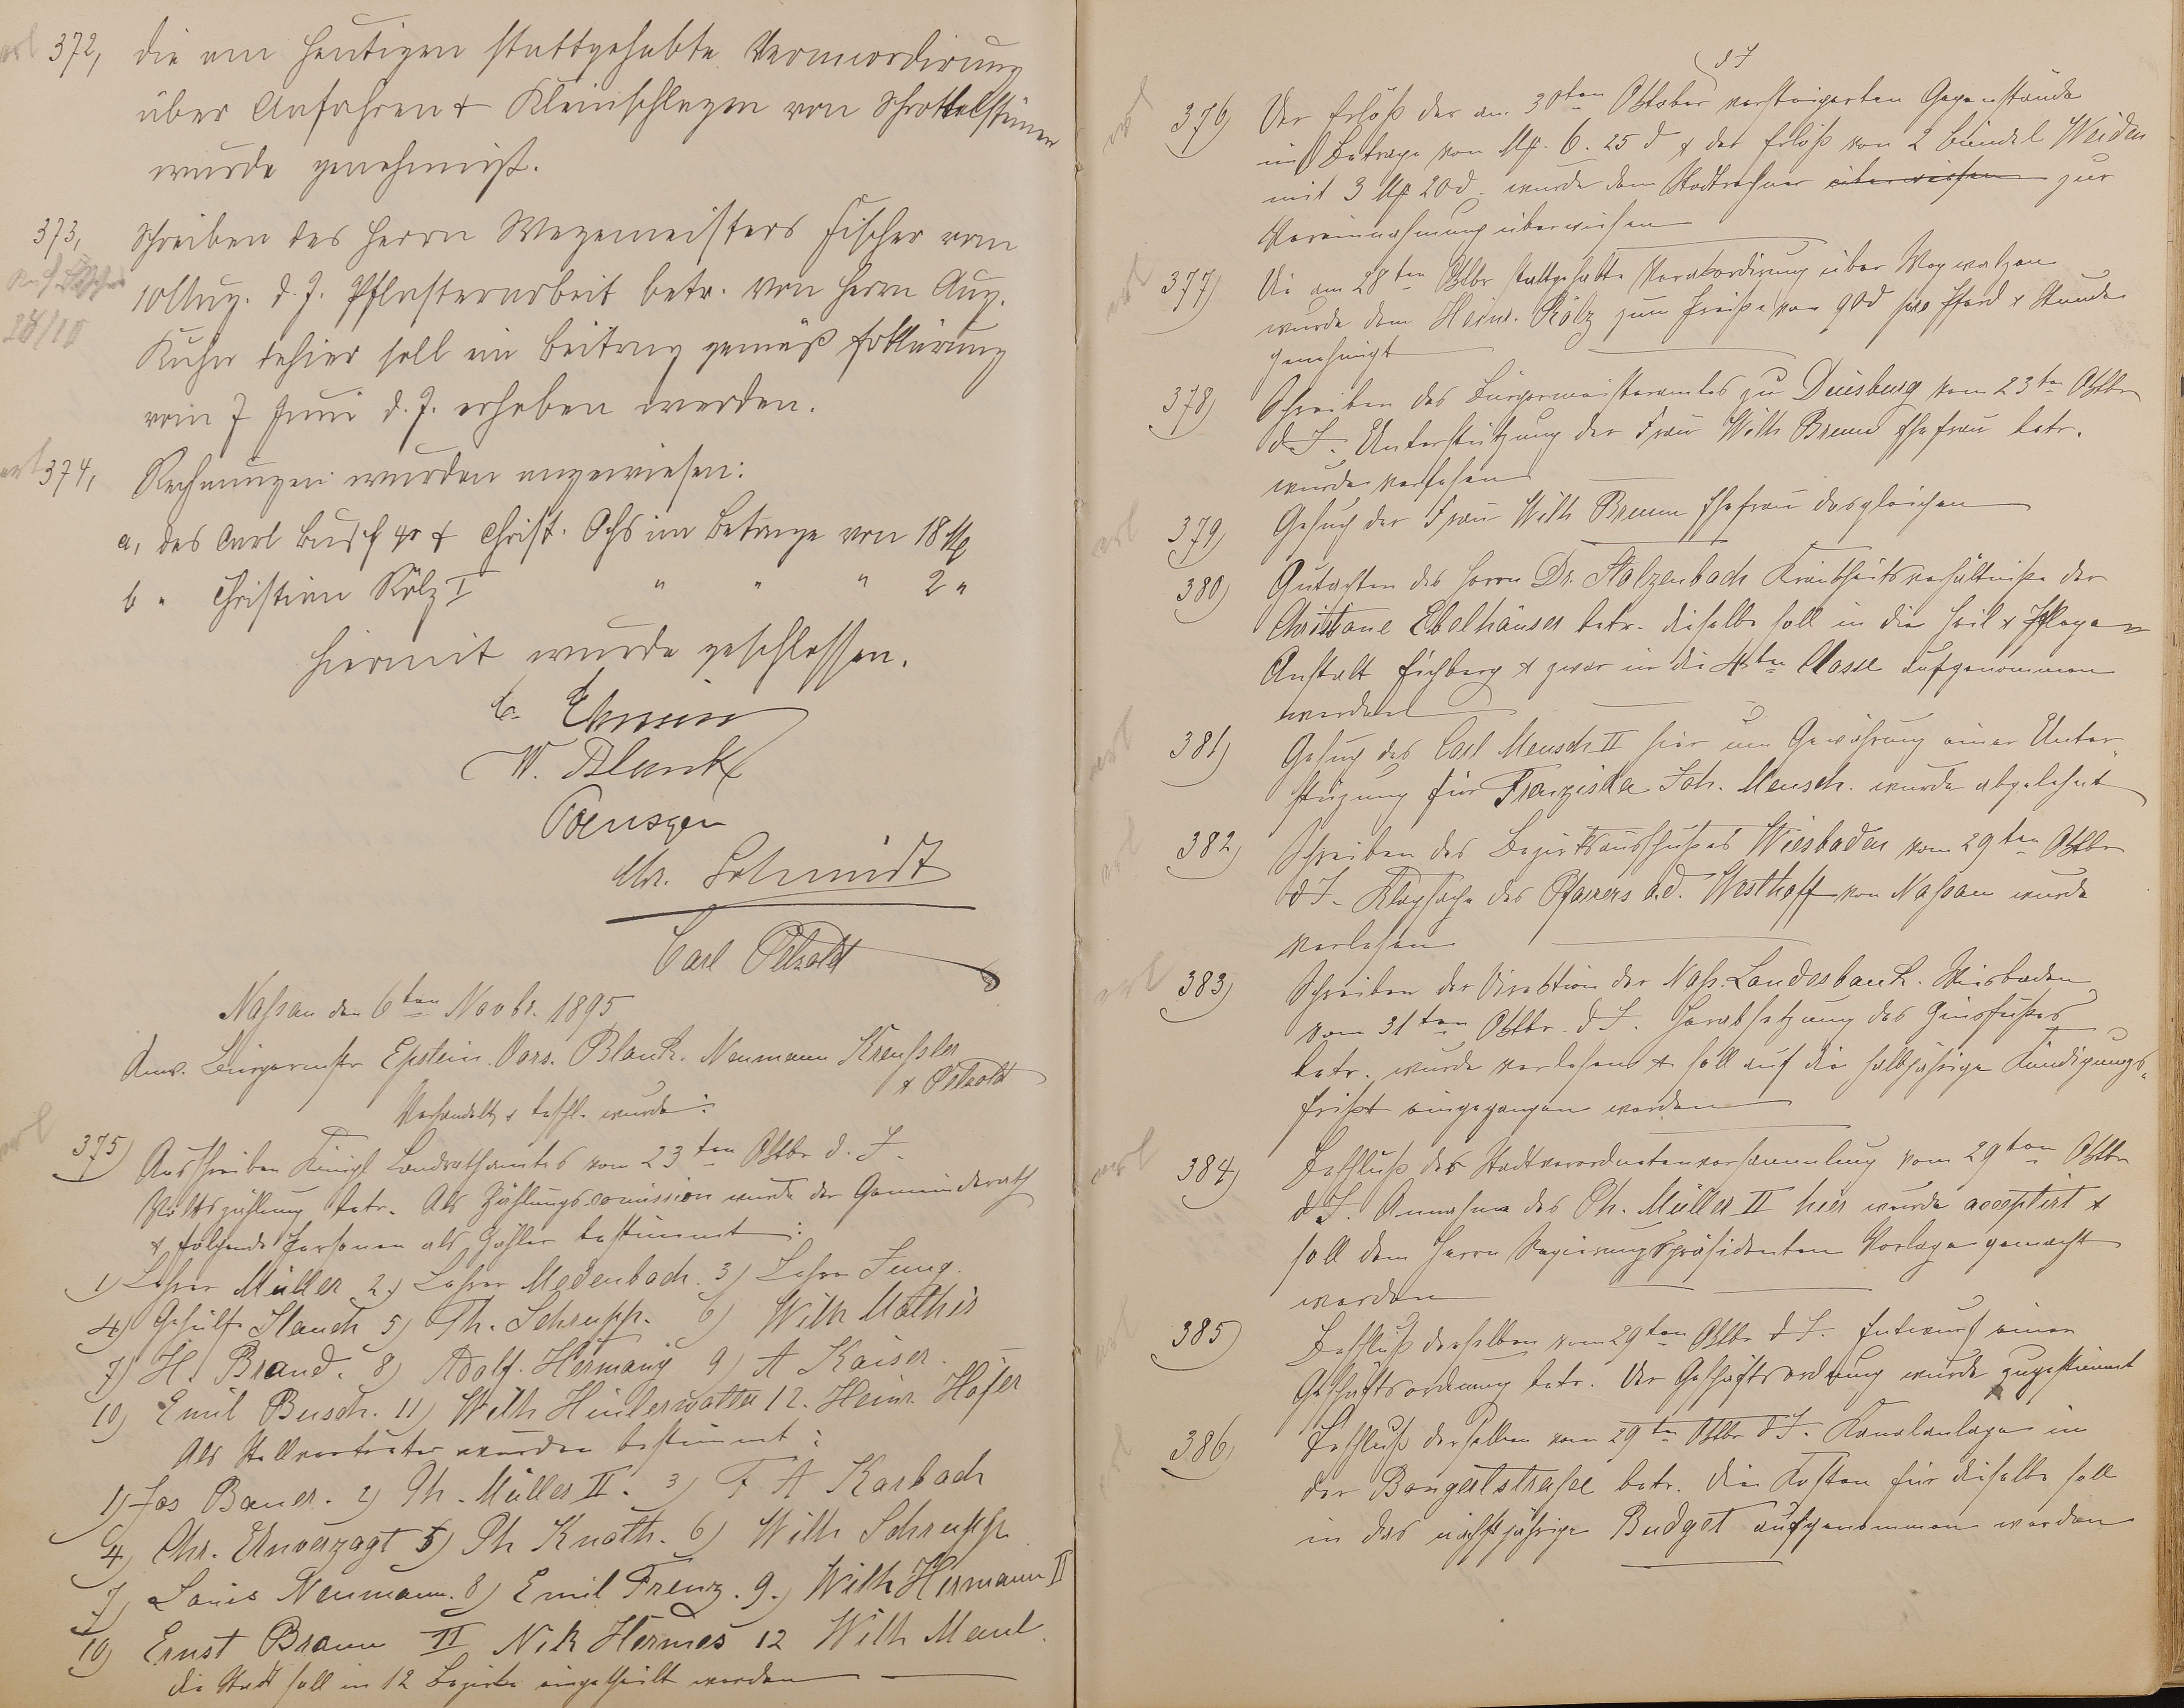 erl 372, die am heutigen stattgehabte Veraccordirung
über Anfahren & Kleinschlagen von Schrottelsteinen
wurde genehmigt.
373, Schreiben des Herrn Wegemeisters Fischer vom
10 Aug. d. J. Pflasterarbeit betr. von Herrn Aug.
28/10
Kuhn dahier soll ein Beitrag gemäß Erklärung
vom 7 Juni d. J. erhoben werden.
erl 374, Rechnungen wurden angewiesen:
a, des Carl Busch 4r & Christ. Ochs im Betrage von 18 M
b " Christian Kölz I " " " 2 "
hiermit wurde geschlossen.
W. Blank
Poensgen
Chr. Schmidt
Carl Petzold
Naßau den 6ten Novbr. 1895
Anw. Bürgermstr Epstein Vors. Blank. Neumann Kreußler
& Petzold
Verhandelt & beschl. wurde:
erl
375) Ausschreiben Königl Landrathsamtes vom 23ten Oktbr d. J.
Volkszählung betr. Als Zählungscomission wurde der Gemeinderath
& folgende Personen als Zähler bestimmt:
1) Lehrer Müller 2) Lehrer Medenbach. 3) Lehrer Jung.
4) Gehülfe Stauch 5) Ph. Schrupp. 6) Wilh Mathis
7) H. Brand. 8) Adolf. Hermany 9) A Kaiser.
10) Emil Busch. 11) Wilh Hinterwälter 12. Heinr. Hofer
Als Stellvertreter wurden bestimmt:
1) Jos Bauer. 2) Ph. Müller II. 3) F A Karbach
4) Chr. Unverzagt 5) Ph Knoth. 6) Wilh Schrupp
7) Louis Neumann. 8) Emil Trenz. 9.) Wilh Hermann II
10) Ernst Braun 11 Nik Hermes 12 Wilh Maul.
die Stadt soll in 12 Bezirke eingetheilt werden
d J
376) Der Erlöß der am 30ten Oktober versteigerten Gegenstände
im Betrage von M. 6. 25 d & der Erlöß von 2 Bündel Weiden
mit 3 M 20 d. wurde dem Stadtrechner überwiesen zur
Vereinnahmung überwiesen
377) Die am 28ten Oktbr stattgehabte Verakordirung über Wegwalzen
wurde dem Heinr. Kölz zum Preiße von 90 d pro Pferd & Stunde
genehmigt
378) Schreiben des Bürgermeisteramtes zu Duisburg vom 23ten Oktbr
d J. Unterstützung der Frau Wilh Bruun Ehefrau betr.
wurde verlesen
erl
379) Gesuch der Frau Wilh Bruun Ehefrau desgleichen
380) Gutachten des Herrn Dr. Stolzenbach Krankheitsverhältniße der
Christiane Ebelhäuser betr. dieselbe soll in die Heil & Pflege=
Anstalt Eichberg & zwar in die 4te Classe aufgenommen
werden
erl
381) Gesuch des Carl Mensch II hier um Gewährung einer Unter-
stüzung für Franziska Joh. Mensch. wurde abgelehnt
erl
382) Schreiben des Bezirksausschußes Wiesbaden vom 29ten Oktbr
d J. Klagsache des Pfarrers a.d. Westhoff von Naßau wurde
verlesen
erl
383) Schreiben der Direktion der Naß. Landesbank. Wiesbaden
vom 31ten Oktbr. d J. Herabsetzung des Zinsfußes
betr. wurde verlesen & soll auf die halbjährige Kündigungs-
frißt eingegangen werden
erl
384) Beschluß der Stadtverordnetenversammlung vom 29ten Oktbr
d J. Annahme des Ph. Müller II hier wurde acceptirt &
soll dem Herrn Regierungspräsidenten Vorlage gemacht
werden
erl
385) Beschluß derselben vom 29ten Oktbr d J. Entwurf einer
Geschäftsordnung betr. Der Geschäftsordnung wurde zugestimmt
erl
386) Beschluß derselben vom 29ten Oktbr d J. Kanalanlage in
der Bongertstraße betr. die Kosten für dieselbe soll
in das nächstjährige Budget aufgenommen werden